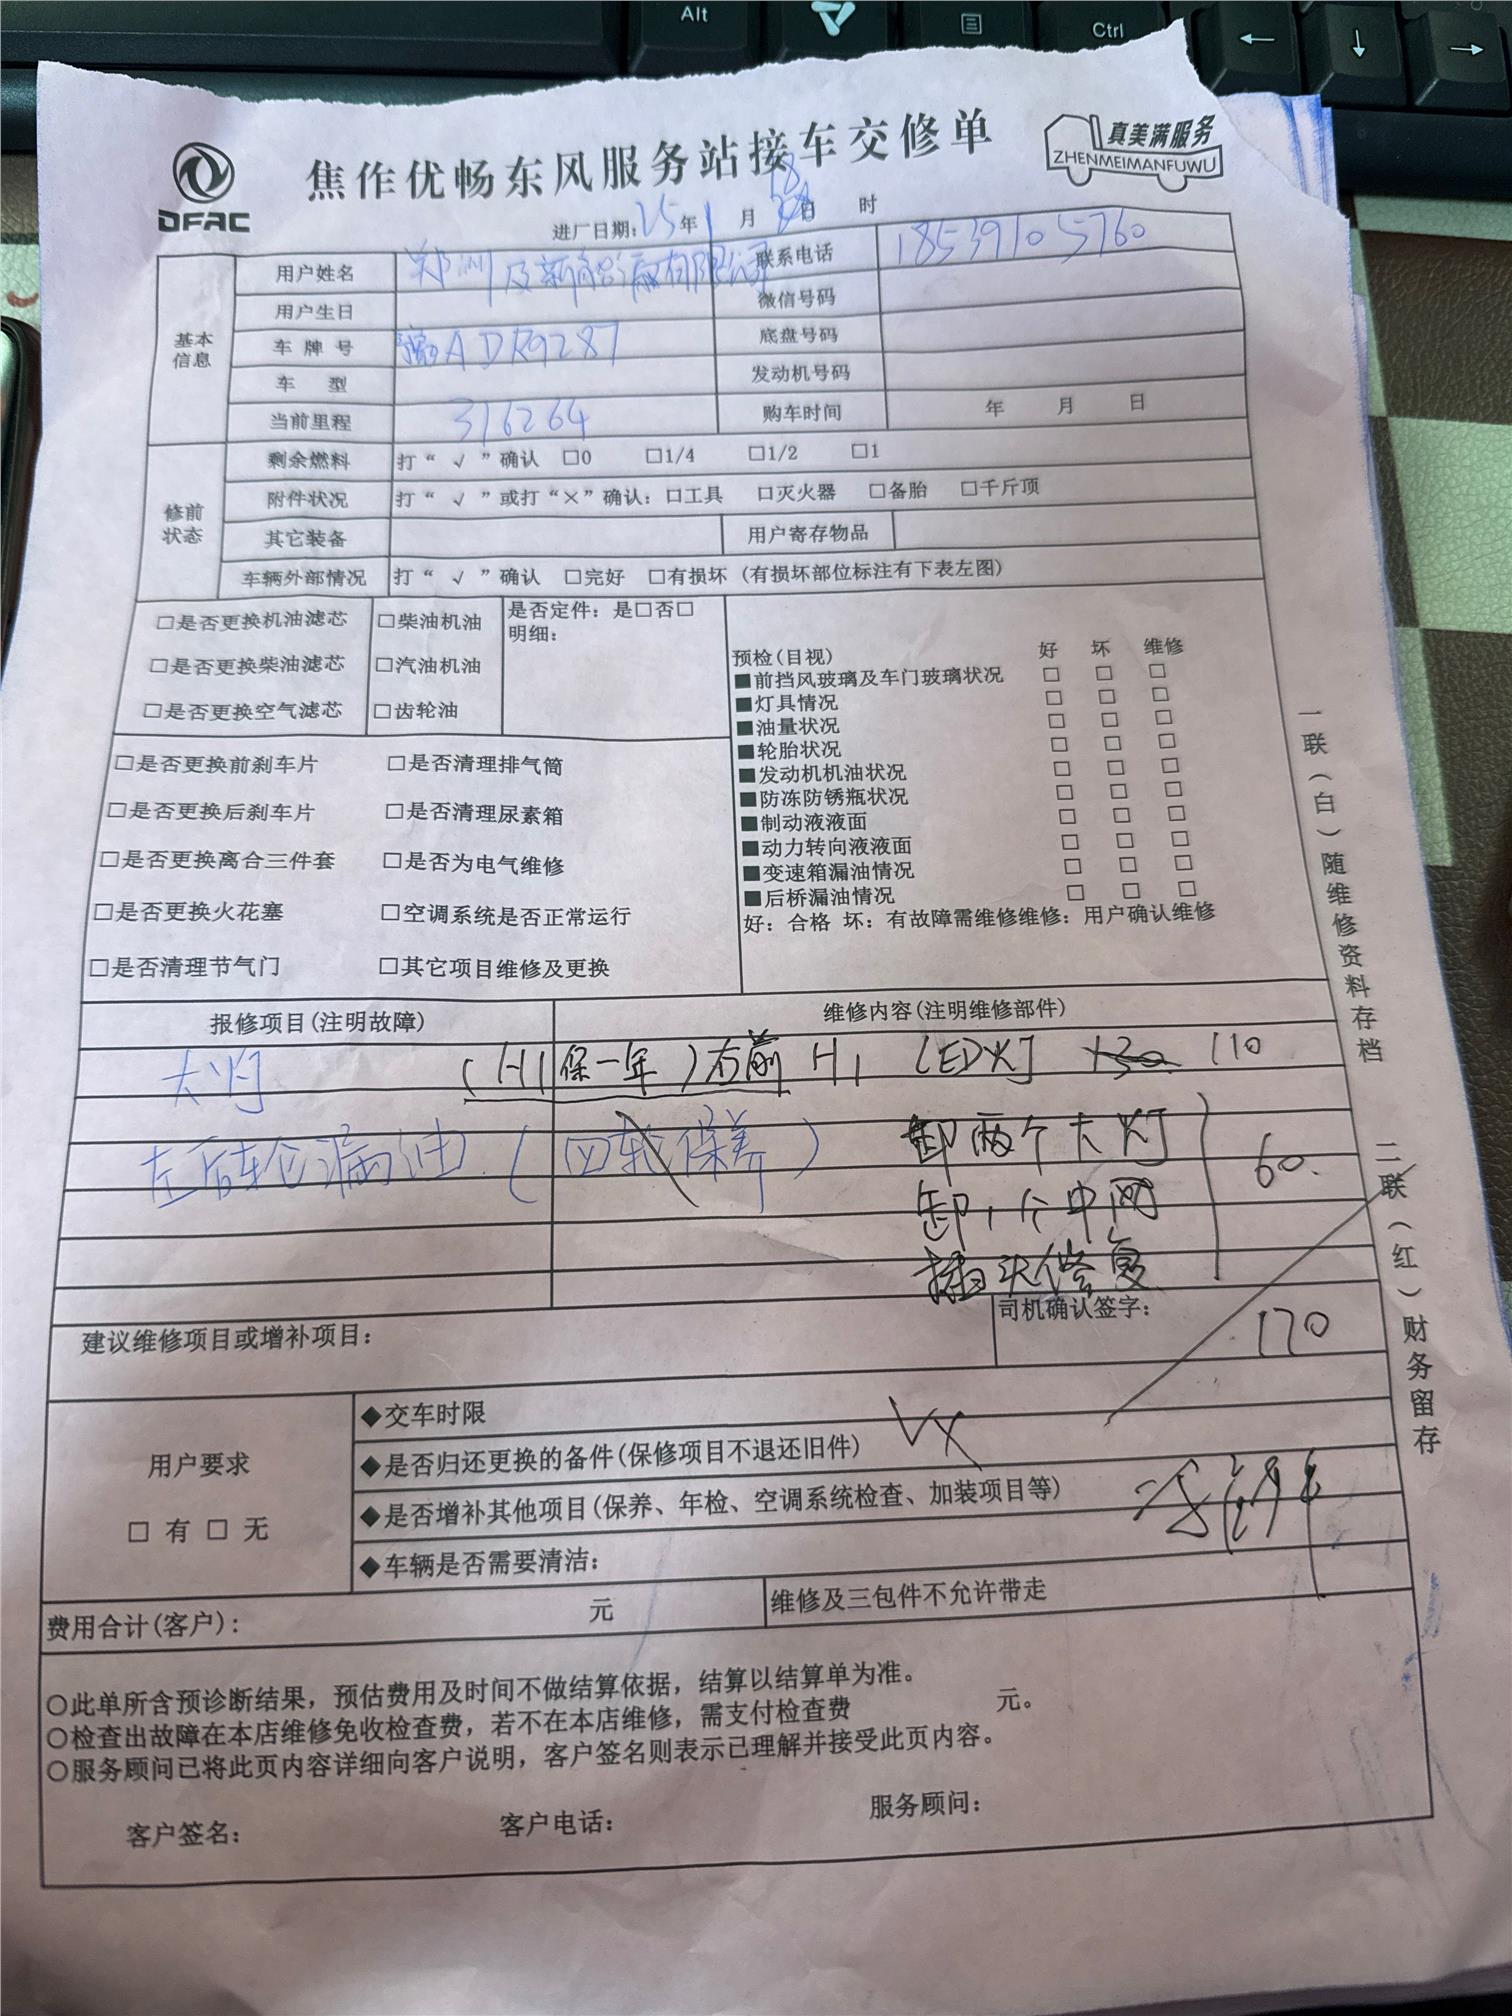 Alt
Ctrl
焦作优畅东风服务站接车交修单
DFAC
真美满服务
ZHENMEIMANFUWU
进厂日期:25年1月18日 时
基本信息
用户姓名 郑州 有限公司 联系电话 18539105760
用户生日 微信号码
车牌号 豫ADK9287 底盘号码
车型 发动机号码
当前里程 316264 购车时间 年 月 日
修前状态
剩余燃料 打“√”确认 □0 □1/4 □1/2 □1
附件状况 打“√”或打“×”确认:□工具 □灭火器 □备胎 □千斤顶
其它装备 用户寄存物品
车辆外部情况 打“√”确认 □完好 □有损坏(有损坏部位标注有下表左图)
□是否更换机油滤芯 □柴油机油 是否定件:是□否□
明细:
□是否更换柴油滤芯 □汽油机油
□是否更换空气滤芯 □齿轮油
□是否更换前刹车片 □是否清理排气筒
□是否更换后刹车片 □是否清理尿素箱
□是否更换离合三件套 □是否为电气维修
□是否更换火花塞 □空调系统是否正常运行
□是否清理节气门 □其它项目维修及更换
预检(目视) 好 坏 维修
■前挡风玻璃及车门玻璃状况 □ □ □
■灯具情况 □ □ □
■油量状况 □ □ □
■轮胎状况 □ □ □
■发动机机油状况 □ □ □
■防冻防锈瓶状况 □ □ □
■制动液液面 □ □ □
■动力转向液液面 □ □ □
■变速箱漏油情况 □ □ □
■后桥漏油情况 □ □ □
好:合格 坏:有故障需维修维修:用户确认维修
报修项目(注明故障) 维修内容(注明维修部件)
大灯 (H1保一年)右前 H1 LED灯 130 110
左后轮漏油(四轮保养) 卸两个大灯
卸1个中网 60.
插头修复
建议维修项目或增补项目: 司机确认签字: 170
用户要求
□ 有 □ 无
◆交车时限
◆是否归还更换的备件(保修项目不退还旧件) VX
◆是否增补其他项目(保养、年检、空调系统检查、加装项目等)
◆车辆是否需要清洁:
费用合计(客户): 元 维修及三包件不允许带走
○此单所含预诊断结果,预估费用及时间不做结算依据,结算以结算单为准。
○检查出故障在本店维修免收检查费,若不在本店维修,需支付检查费 元。
○服务顾问已将此页内容详细向客户说明,客户签名则表示已理解并接受此页内容。
客户签名: 客户电话: 服务顾问:
一联(白)随维修资料存档 二联(红)财务留存